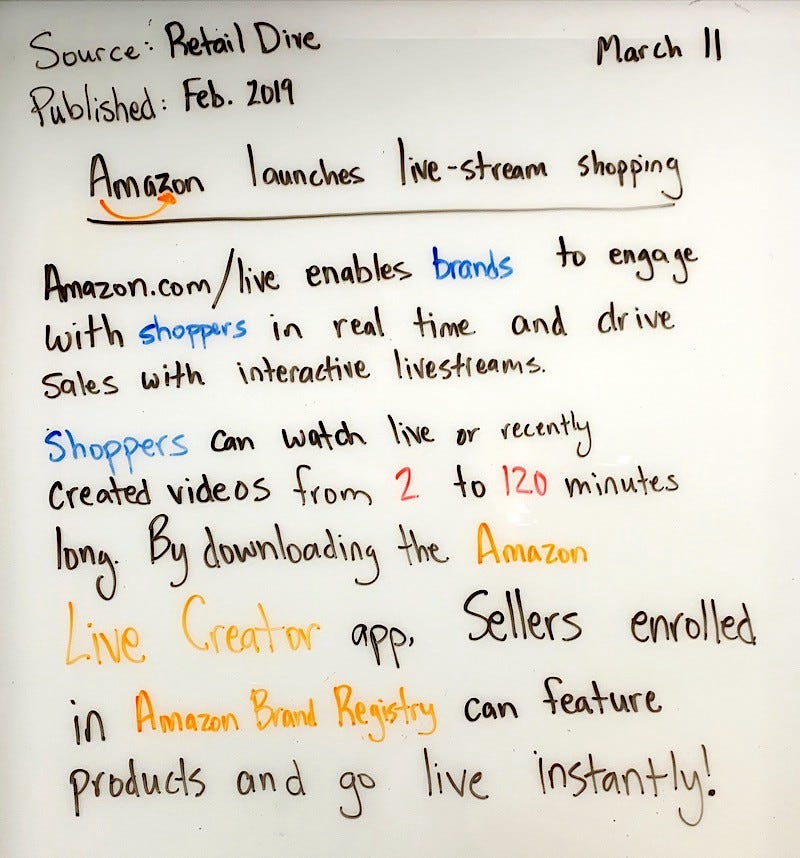 Source: Retail Dive March 11
Published: Feb. 2019
Amazon launches live-stream shopping
Amazon.com/live enables brands to engage
with shoppers in real time and drive
sales with interactive livestreams.
Shoppers can watch live or recently
created videos from 2 to 120 minutes
long. By downloading the Amazon
Live Creator app, Sellers enrolled
in Amazon Brand Registry can feature
products and go live instantly!